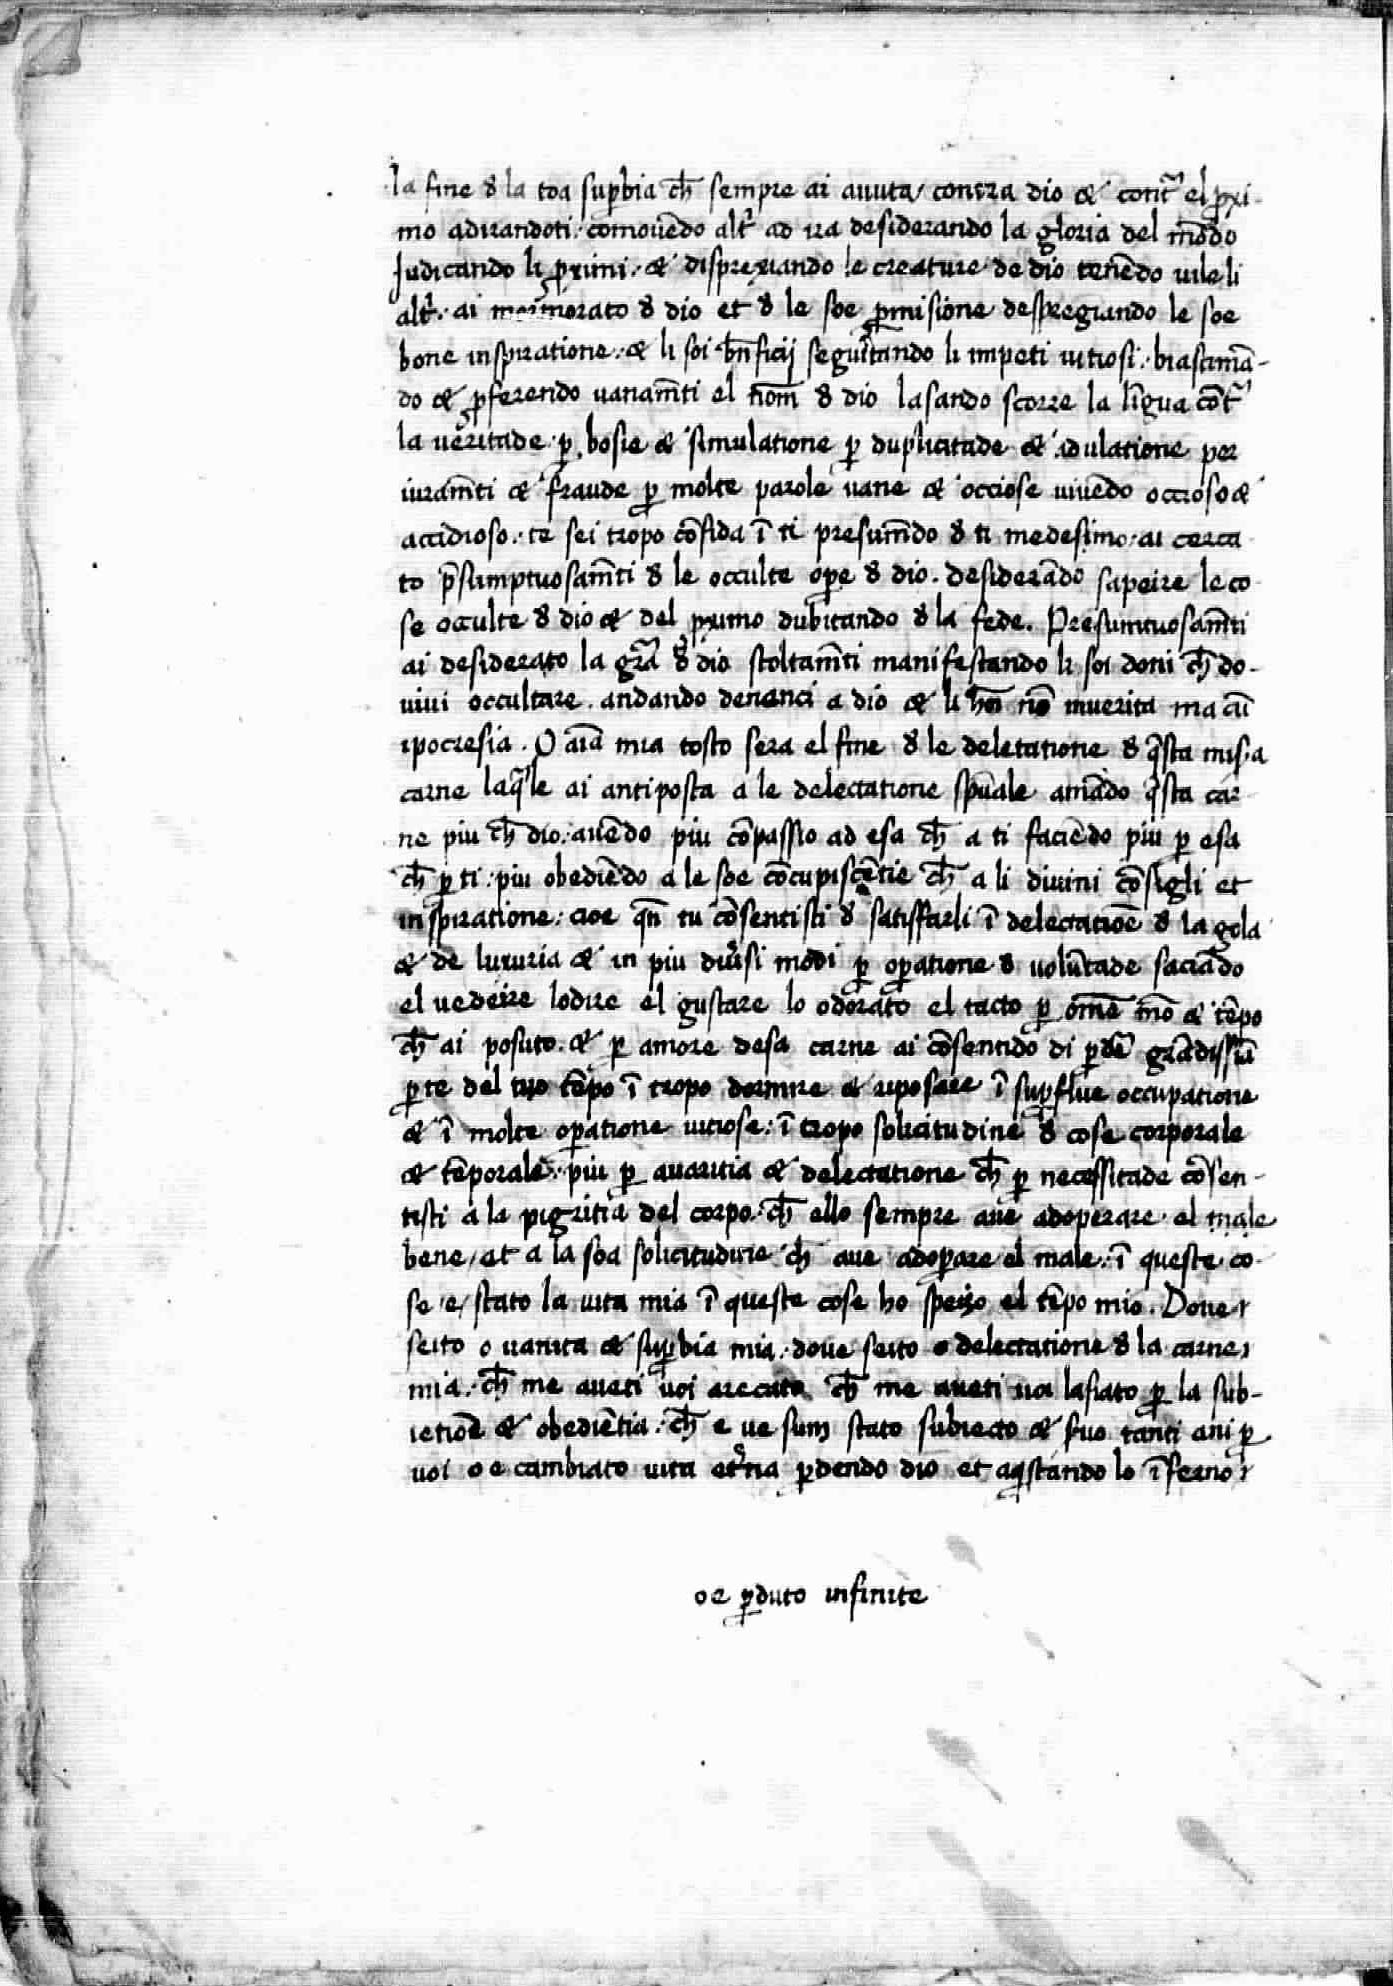 la fine d̵ la toa sup̱bia ch̄ sempre ai avuta / contra dio & cont᷒ el p̱xi-
mo adirandoti. comovēdo alt᷒ ad ira desiderando la gloria del mōdo
Judicando li p̱ximi. & disprexiando le creature de dio tenēdo vile li
alt᷒. ai mormorato d̵ dio et d̵ le soe p̱misione despregiando le soe
bone inspiratione. & li soi bn̄ficij seguitando li impeti vitiosi. biastimā-
do & p̱ferendo vanam̄ti el nom̄ d̵ dio lasando scorre la līgua cōt᷒
la veritade. p̱ bosie & simulatione p̱ duplicitade & adulatione per
iuram̄ti & fraude p̱ molte parole vane & occiose vivēdo occioso &
accidioso. te sei tropo cōfida ī ti presum̄do d̵ ti medesimo. ai cerca
to p̄sumptuosam̄ti d̵ le occulte op̱e d̵ dio. desiderādo sapeire le co
se occulte d̵ dio & del p̱ximo dubitando d̵ la fede. Presumtuosam̄ti
ai desiderato la gr̄a d̵ dio stoltam̄ti manifestando li soi doni ch̄ do-
vivi occultare. andando denanci a dio & li ho̅i no̅ in verita ma cū
ipocresia. O aīa mia tosto sera el fine d̵ le deletatione d̵ q̄sta mis᷒a
carne laq̄le ai antiposta a le delectatione sp̄uale amādo q̄sta car-
ne piu ch̄ dio. avēdo piu cōpassio ad esa ch̄ a ti faciēdo piu p̱ esa
ch̄ p̱ ti. piu obediēdo a le soe cōcupiscētie ch̄ a li divini cōsigli et
inspiratione. cioe qn̄ tu cōsentisti d̵ satisffarli ī delectatiōe d̵ la gola
& de luxuria & in piu div᷒si modi p̱ op̱atione d̵ volūtade saciādo
el vedeire lodire el gustare lo odorato el tacto p̱ om̄e mō & tēpo
ch̄ ai posuto. & p̱ amore desa carne ai cōsentido di p̱dē grādissīa
p̱te del tuo tēpo ī tropo dormire & riposare ī sup̱flue occupatione
& ī molte op̱atione vitiose. ī tropo solicitudine d̵ cose corporale
& tēporale. piu p̱ avaritia & delectatione ch̄ p̱ necessitade cōsen-
tisti a la pigritia del corpo. ch̄ ello sempre ave adoperare el male
bene / et a la soa solicitudine ch̄ ave adop̱are el male. ī queste co-
se / e / stato la vita mia ī queste cose ho speixo el tēpo mio. Dove
seito o vanita & sup̱bia mia. dove seito o delectatione d̵ la carne
mia. ch̄ me aveti voi arecato ch̄ me aveti voi lasiato p̱ la sub-
ietiōe & obediētia. ch̄ e ve sum stato subiecto & s᷒vo tanti ani p̱
voi o e cambiato vita et᷒na p̱dendo dio et aq̱stando lo īferno
oe p̱duto infinite